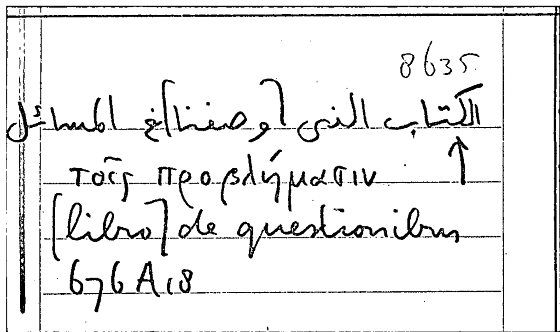 8635
الكتاب الذى [وضعنا] فى المسائل
↑
τοῖς προβλήμασιν
[libro] de questionibus
676 A 18